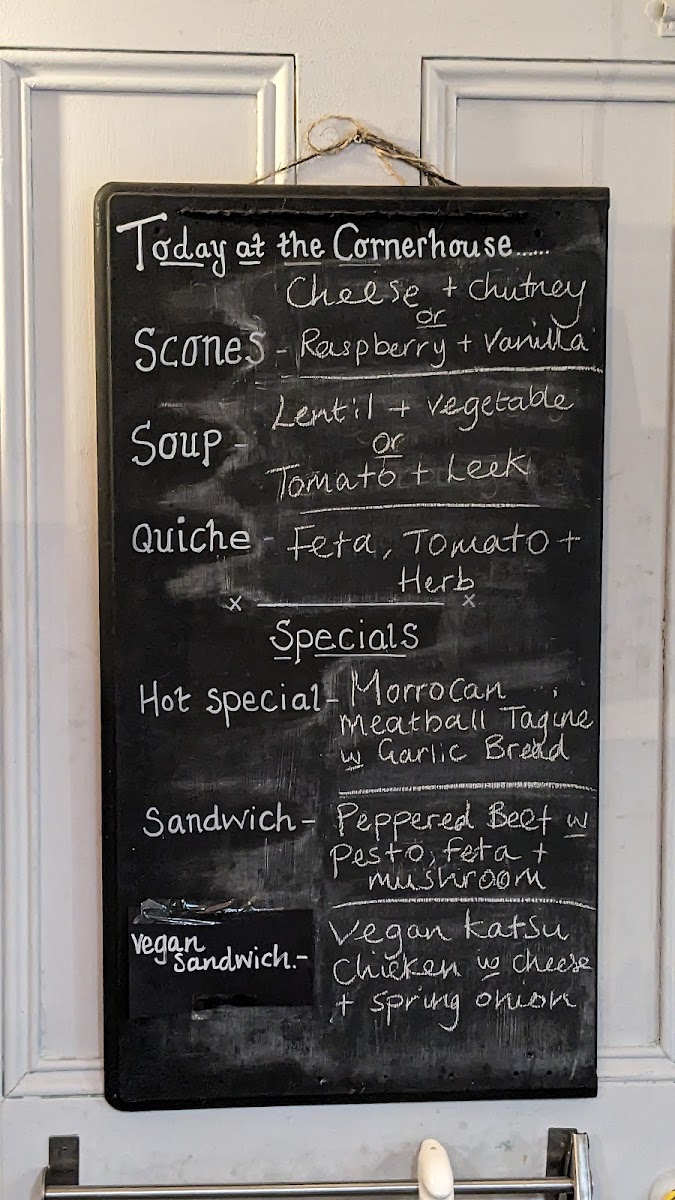 Today at the Cornerhouse......
Cheese + chutney
or
Scones - Raspberry + Vanilla
Lentil + vegetable
Soup - or
Tomato + Leek
Quiche - Feta, Tomato +
Herb
x x
Specials
Hot special - Morrocan
meatball Tagine
w Garlic Bread
Sandwich - Peppered Beef w
pesto, feta +
mushroom
vegan
sandwich.- Vegan katsu
Chicken w cheese
+ spring onion